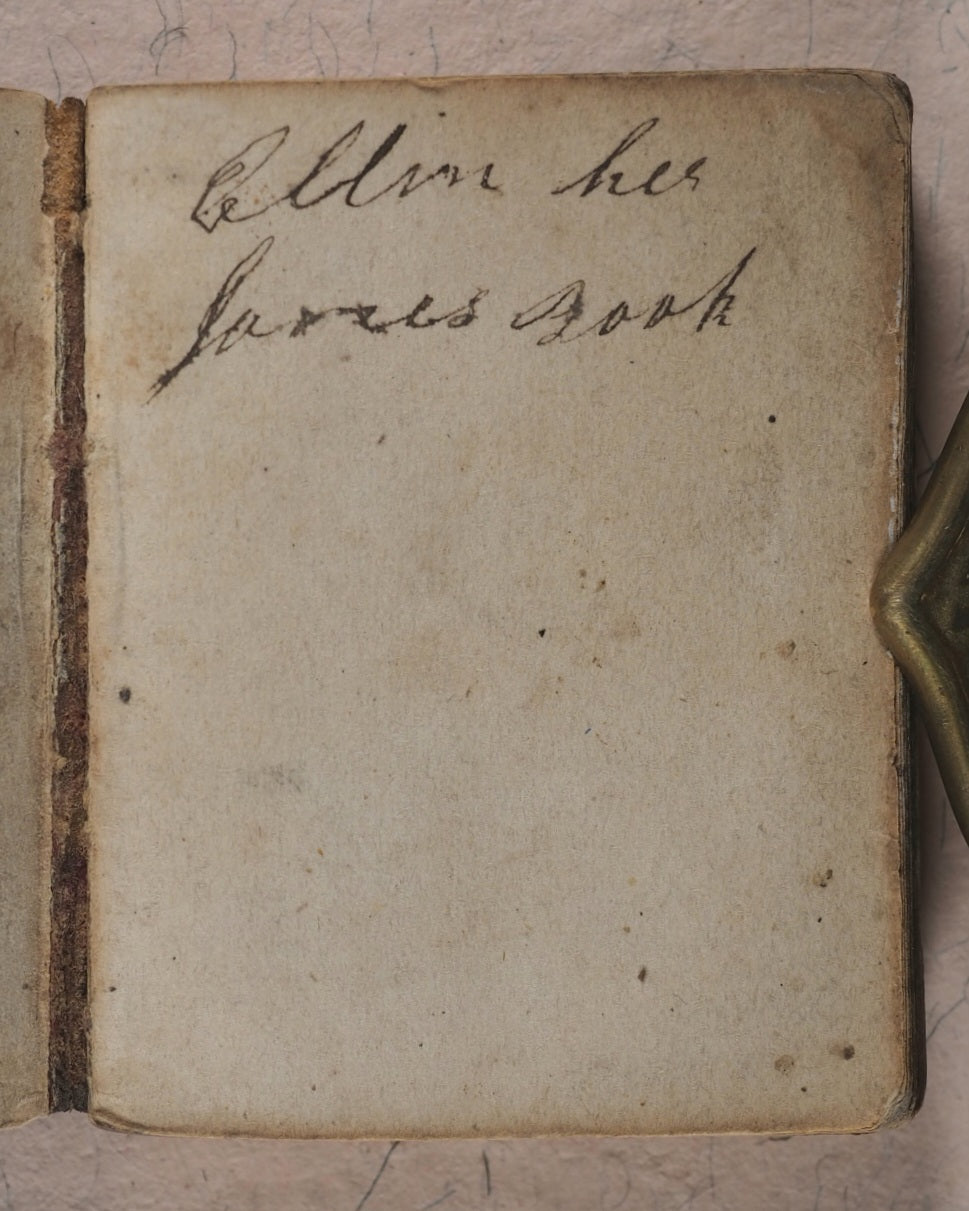 Ellen her
James Book